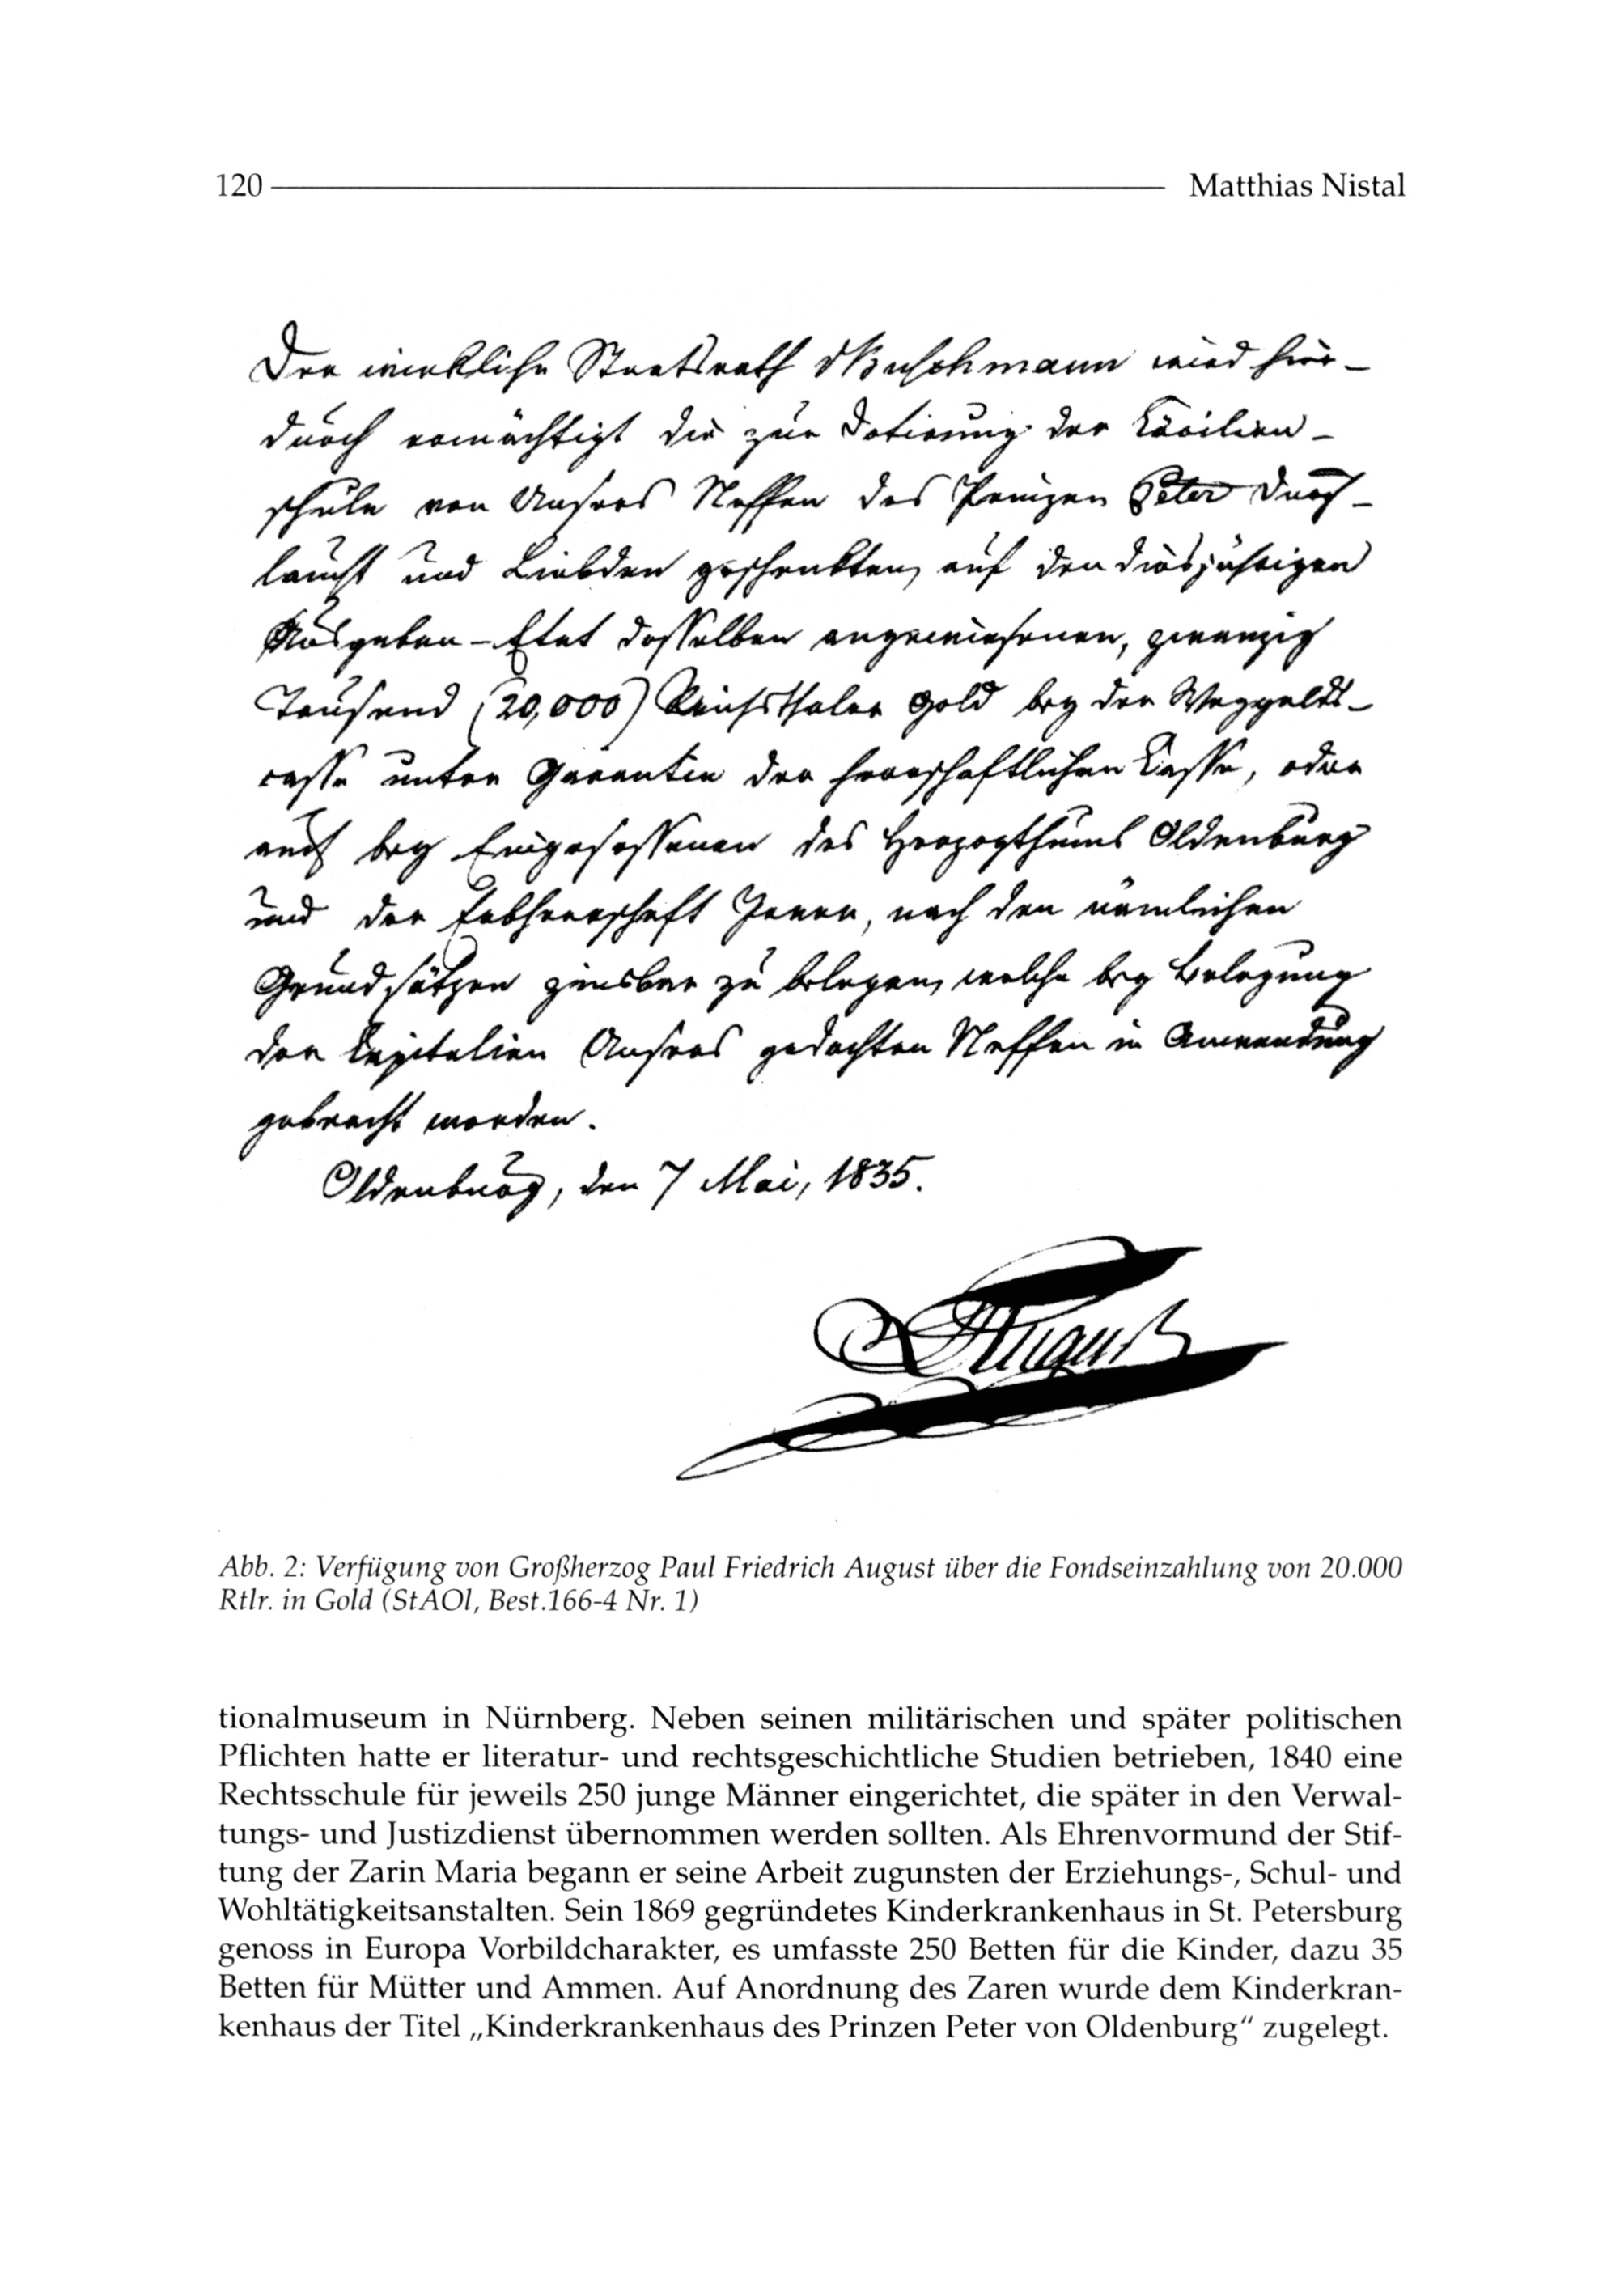 120 Matthias Nistal
Der wirkliche Staatsrath Buschmann wird hier-
durch ermächtigt die zur Dotirung der Cäcilien-
schule von Unsers Neffen des Prinzen Peter Durch-
laucht und Liebden geschenkten, auf den diesjährigen
Ausgaben-Etat desselben angewiesenen, zwanzig
Tausend (20,000) Reichsthaler Gold bey der Weggelds-
casse unter Garantie der herrschaftlichen Casse, oder
auch bey Eingesessenen des Herzogthums Oldenburg
und der Erbherrschaft Jever, nach den nämlichen
Grundsätzen zinsbar zu belegen, welche bey Belegung
der Capitalien Unsers gedachten Neffen in Anwendung
gebracht worden.
Oldenburg, den 7 Mai, 1835.
August
Abb. 2: Verfügung von Großherzog Paul Friedrich August über die Fondseinzahlung von 20.000
Rtlr. in Gold (StAOl, Best.166-4 Nr. 1)
tionalmuseum in Nürnberg. Neben seinen militärischen und später politischen
Pflichten hatte er literatur- und rechtsgeschichtliche Studien betrieben, 1840 eine
Rechtsschule für jeweils 250 junge Männer eingerichtet, die später in den Verwal-
tungs- und Justizdienst übernommen werden sollten. Als Ehrenvormund der Stif-
tung der Zarin Maria begann er seine Arbeit zugunsten der Erziehungs-, Schul- und
Wohltätigkeitsanstalten. Sein 1869 gegründetes Kinderkrankenhaus in St. Petersburg
genoss in Europa Vorbildcharakter, es umfasste 250 Betten für die Kinder, dazu 35
Betten für Mütter und Ammen. Auf Anordnung des Zaren wurde dem Kinderkran-
kenhaus der Titel „Kinderkrankenhaus des Prinzen Peter von Oldenburg“ zugelegt.